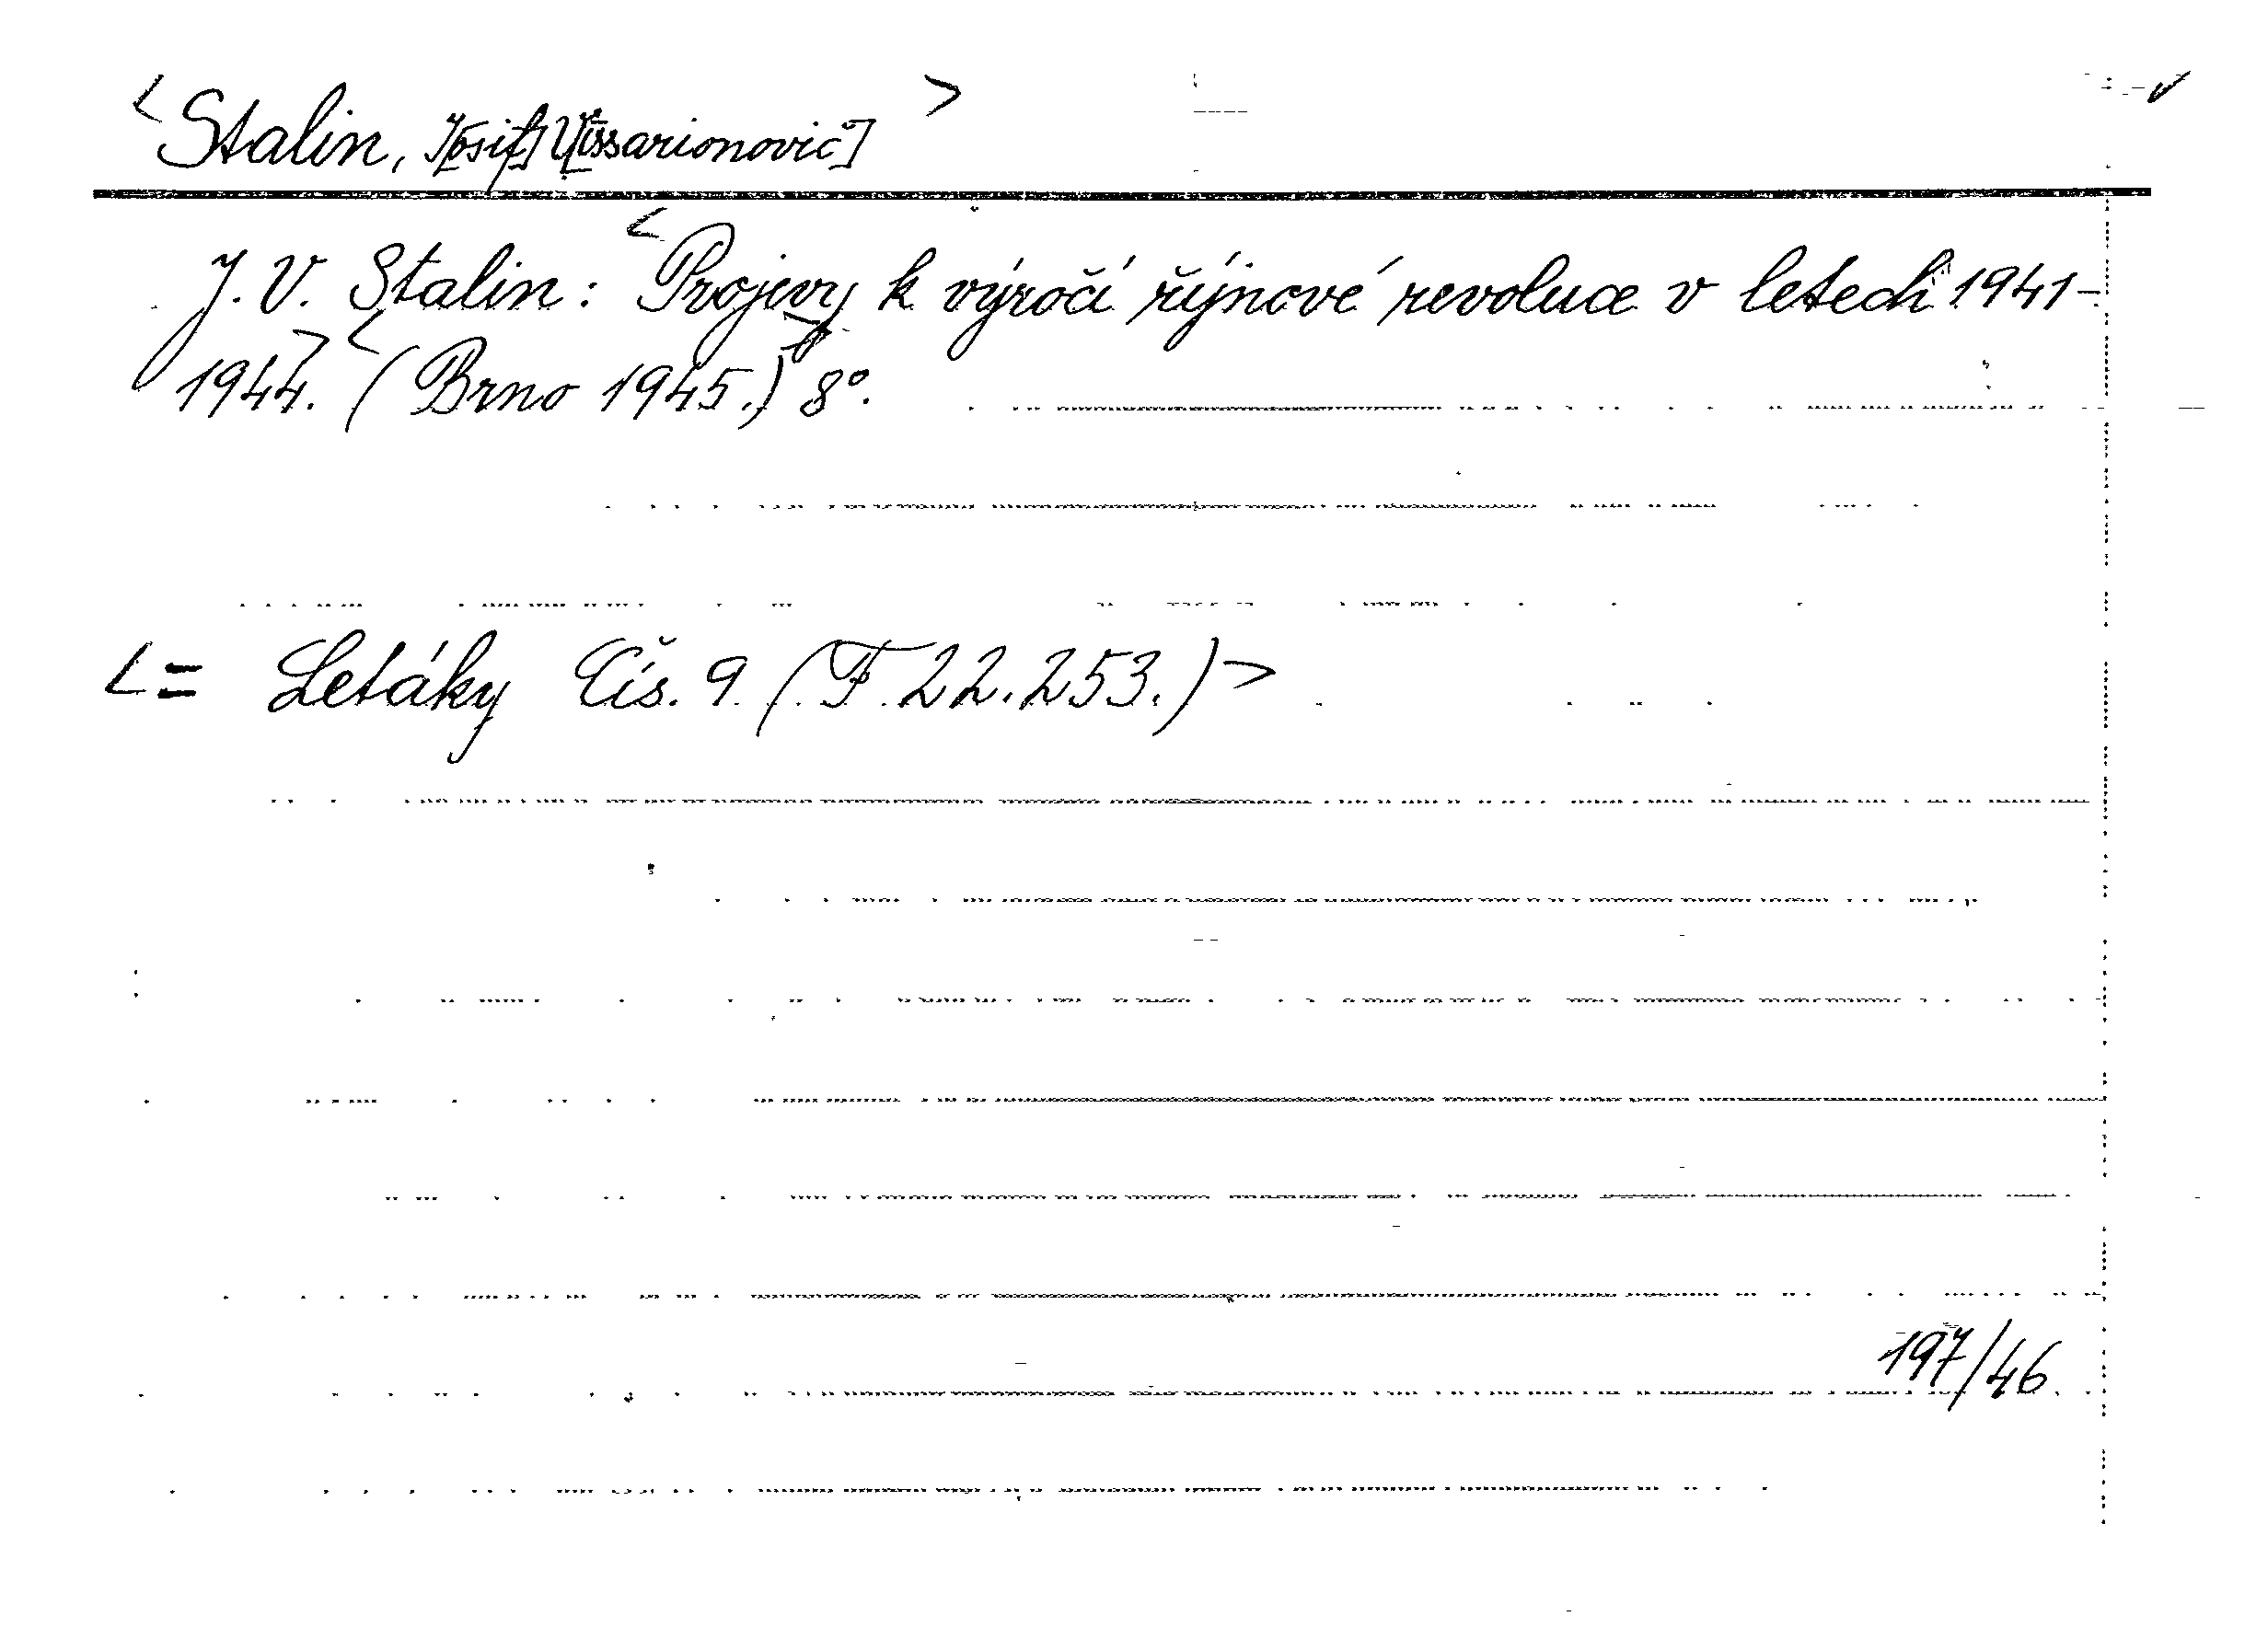 <Stalin, J[osif] V[issarionovič]>
J. V. Stalin: <Projevy k výročí říjnové revoluce v letech 1941-
1944.> <(Brno 1945.)> 8°.
<= Letáky Čís. 9. (F. 22.253.)>
197/46.